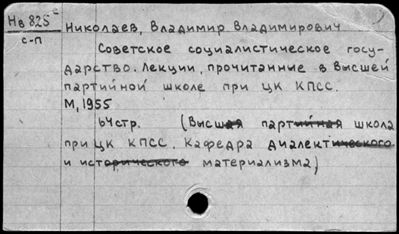 Нв 825
с-п
Николаев, Владимир Владимирович
Советское социалистическое госу-
дарство. Лекции, прочитанные в Высшей
партийной школе при ЦК КПСС.
М, 1955
64стр. (Высшая партийная школа
при ЦК КПСС. Кафедра диалектического
и исторического материализма)